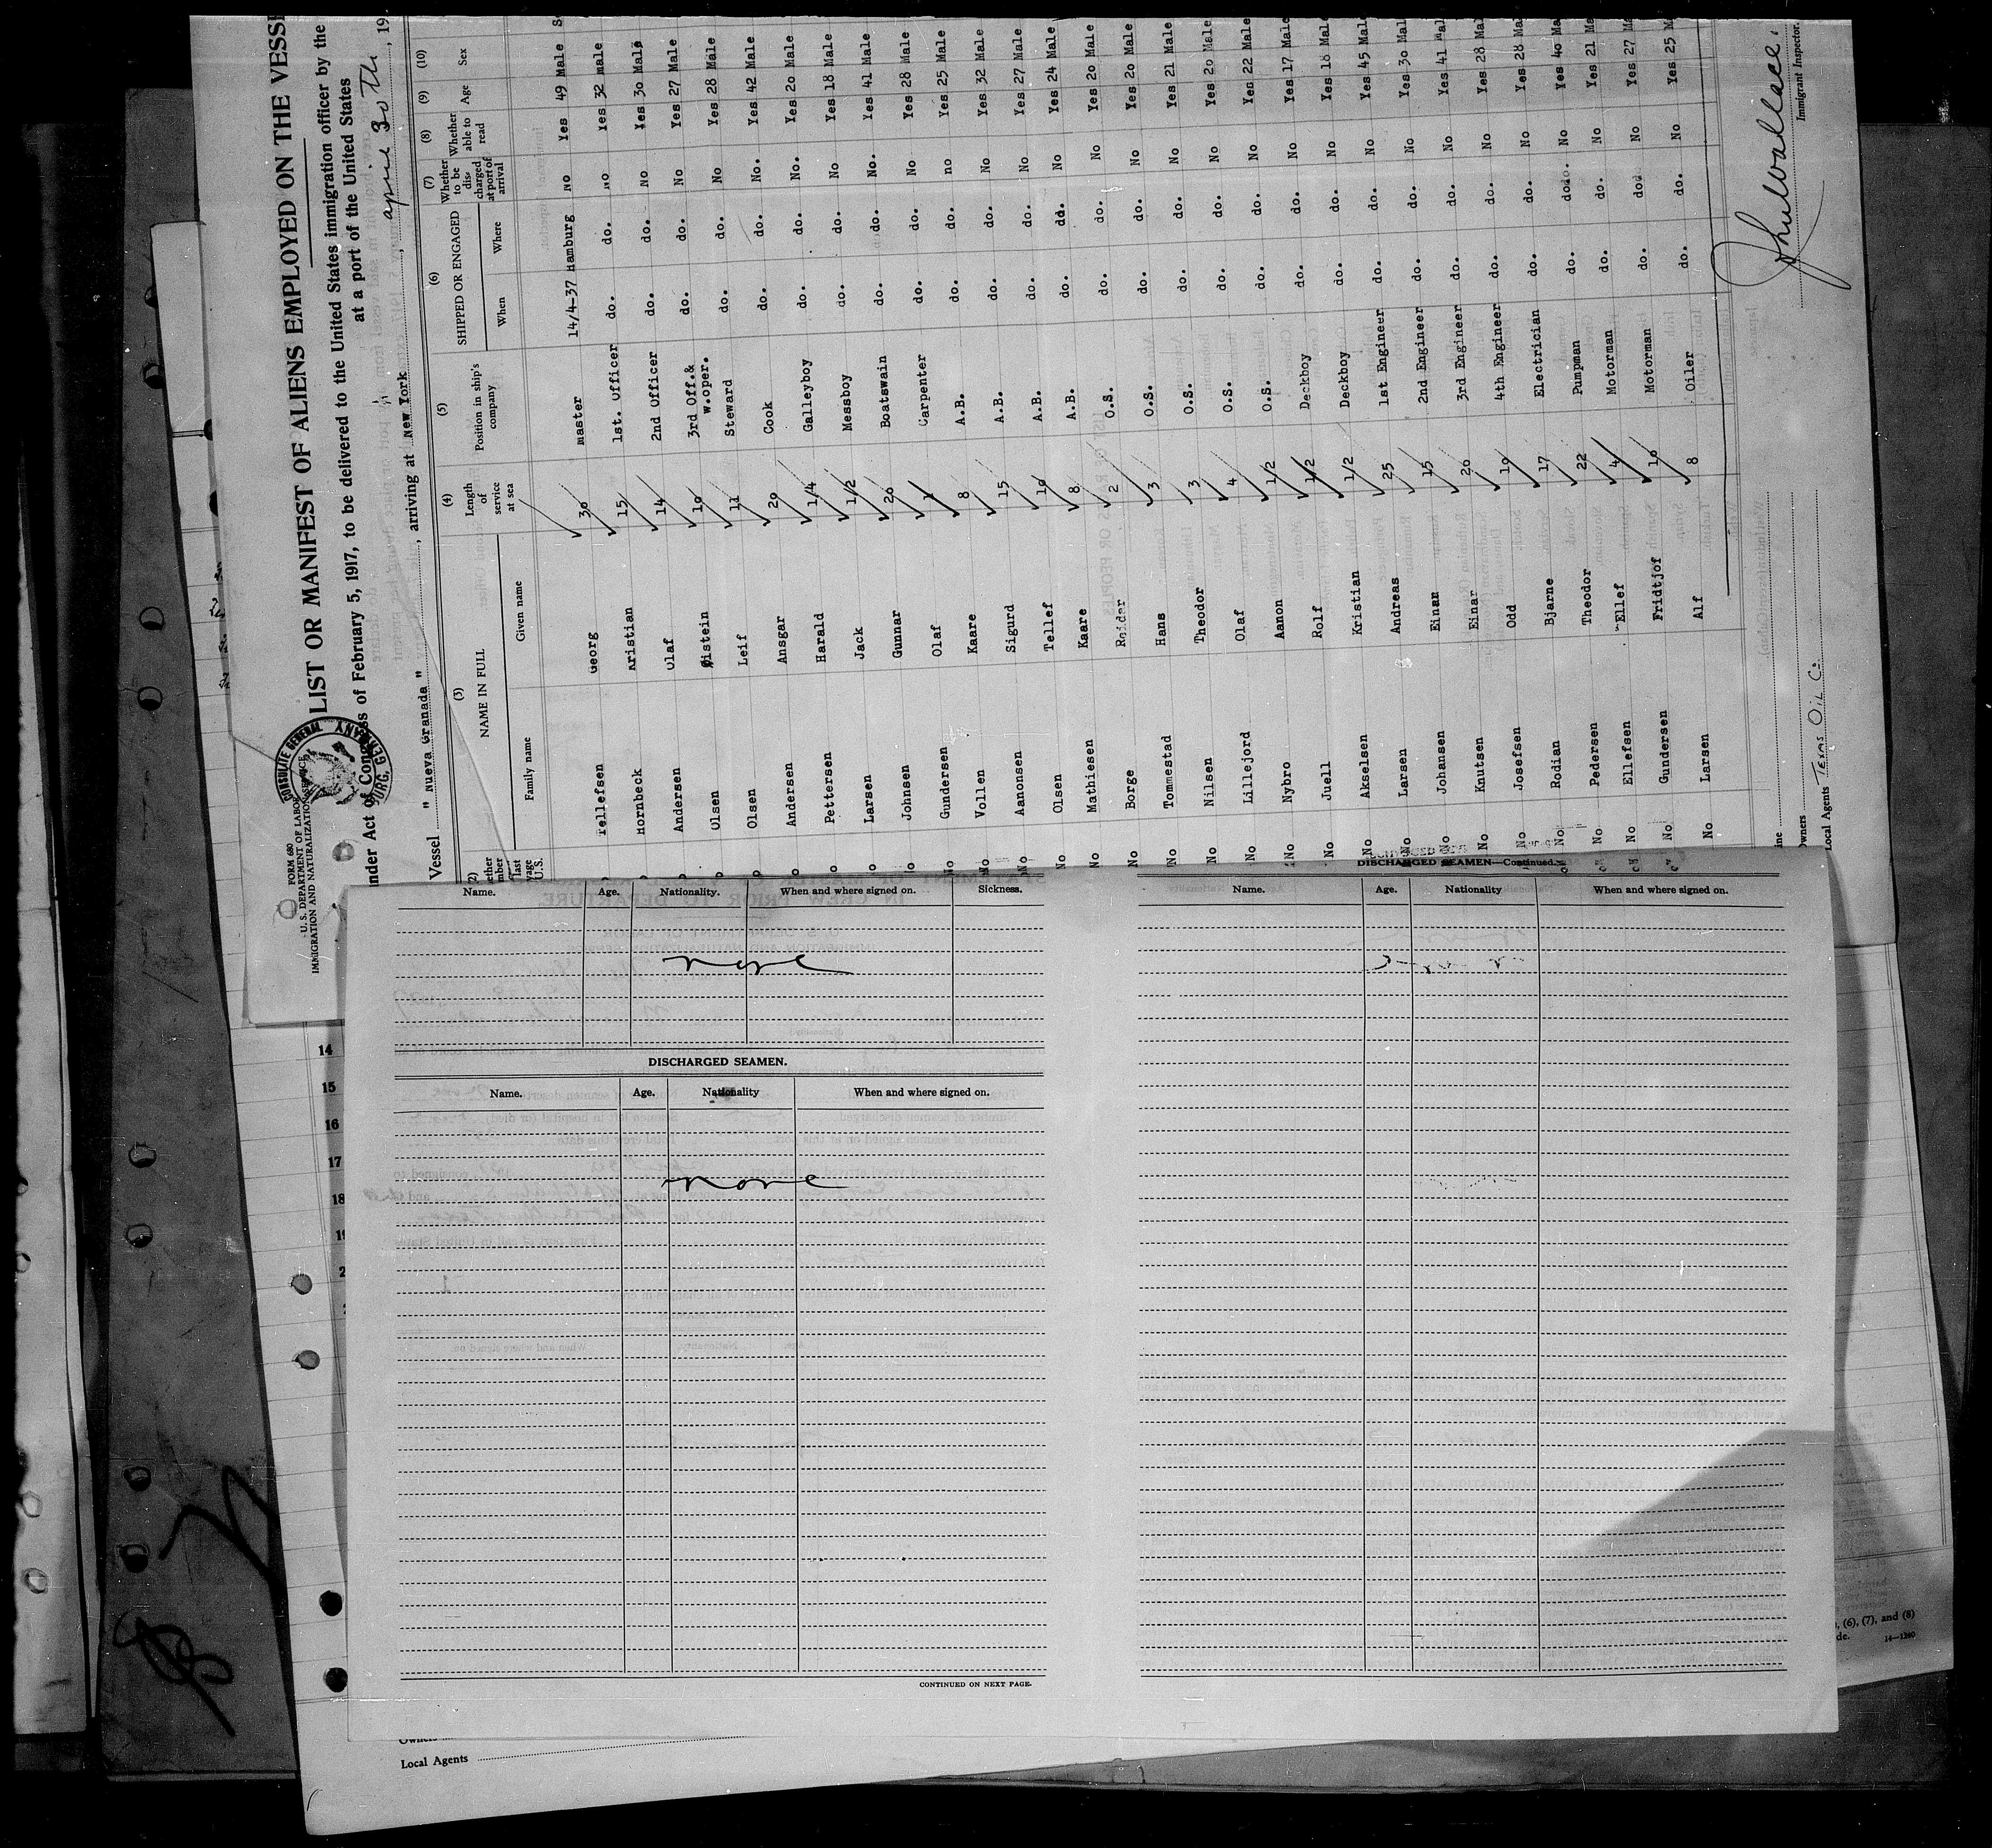 FORM 680
U. S. DEPARTMENT OF LABOR
IMMIGRATION AND NATURALIZATION SERVICE
CONSULATE GENERAL
GERMANY
LIST OR MANIFEST OF ALIENS EMPLOYED ON THE VESSE
under Act of Congress of February 5, 1917, to be delivered to the United States immigration officer by the
at a port of the United States
Vessel " Nueva Granada ", arriving at New York, april 30th, 19
(3) (4) (5) (6) (7) (8) (9) (10)
NAME IN FULL Length of service at sea Position in ship's company SHIPPED OR ENGAGED Whether to be discharged at port of arrival Whether able to read Age Sex
Family name Given name When Where
Tellefsen Georg 30 master 14/4-37 Hamburg No Yes 49 Male
Hornbeck Kristian 15 1st. Officer do. do. No Yes 32 male
Andersen Olaf 14 2nd Officer do. do. No Yes 30 Male
Olsen Øistein 10 3rd Off.& w.oper. do. do. No Yes 27 Male
Olsen Leif 11 Steward do. do. No Yes 28 Male
Andersen Ansgar 20 Cook do. do. No. Yes 42 Male
Pettersen Harald 1/4 Galleyboy do. do. No. Yes 20 Male
Larsen Jack 1/2 Messboy do. do. No Yes 18 Male
Johnsen Gunnar 20 Boatswain do. do. No. Yes 41 Male
No Gundersen Olaf 1 Carpenter do. do. No Yes 28 Male
No Vollen Kaare 8 A.B. do. do. no Yes 25 Male
No Aanonsen Sigurd 15 A.B. do. do. No Yes 32 Male
No Olsen Tellef 10 A.B. do. do. No Yes 27 Male
No Mathiesen Kaare 8 A.B. do. do. No Yes 24 Male
No Borge Reidar 2 O.S. do. do. No Yes 20 Male
No Tommestad Hans 3 O.S. do. do. No Yes 20 Male
No Nilsen Theodor 3 O.S. do. do. No Yes 21 Male
No Lillejord Olaf 4 O.S. do. do. No Yes 20 Male
No Nybro Aanon 1/2 O.S. do. do. No Yes 22 Male
No Juell Rolf 1/2 Deckboy do. do. No Yes 17 Male
No Akselsen Kristian 1/2 Deckboy do. do. No Yes 18 Male
No Larsen Andreas 25 1st Engineer do. do. No Yes 45 Male
No Johansen Einar 15 2nd Engineer do. do. No Yes 30 Mal
No Knutsen Einar 20 3rd Engineer do. do. No Yes 41 Mal
No Josefsen Odd 10 4th Engineer do. do. No Yes 28 Mal
No Rodian Bjarne 17 Electrician do. do. No Yes 28 Mal
No Pedersen Theodor 22 Pumpman do. do. No Yes 40 Ma
No Ellefsen Ellef 4 Motorman do. do. No Yes 21 Ma
No Gundersen Fridtjof 10 Motorman do. do. No Yes 27 Ma
No Larsen Alf 8 Oiler do. do. No Yes 25 M
John Wallace.
Immigrant Inspector.
Local Agents Texas Oil Co.
Name. Age. Nationality. When and where signed on. Sickness.
none
DISCHARGED SEAMEN.
Name. Age. Nationality When and where signed on.
none
CONTINUED ON NEXT PAGE.
DISCHARGED SEAMEN—Continued.
Name. Age. Nationality When and where signed on.
14
15
16
17
18
Owners
Local Agents
, (6), (7), and (8)
de.
14—1240